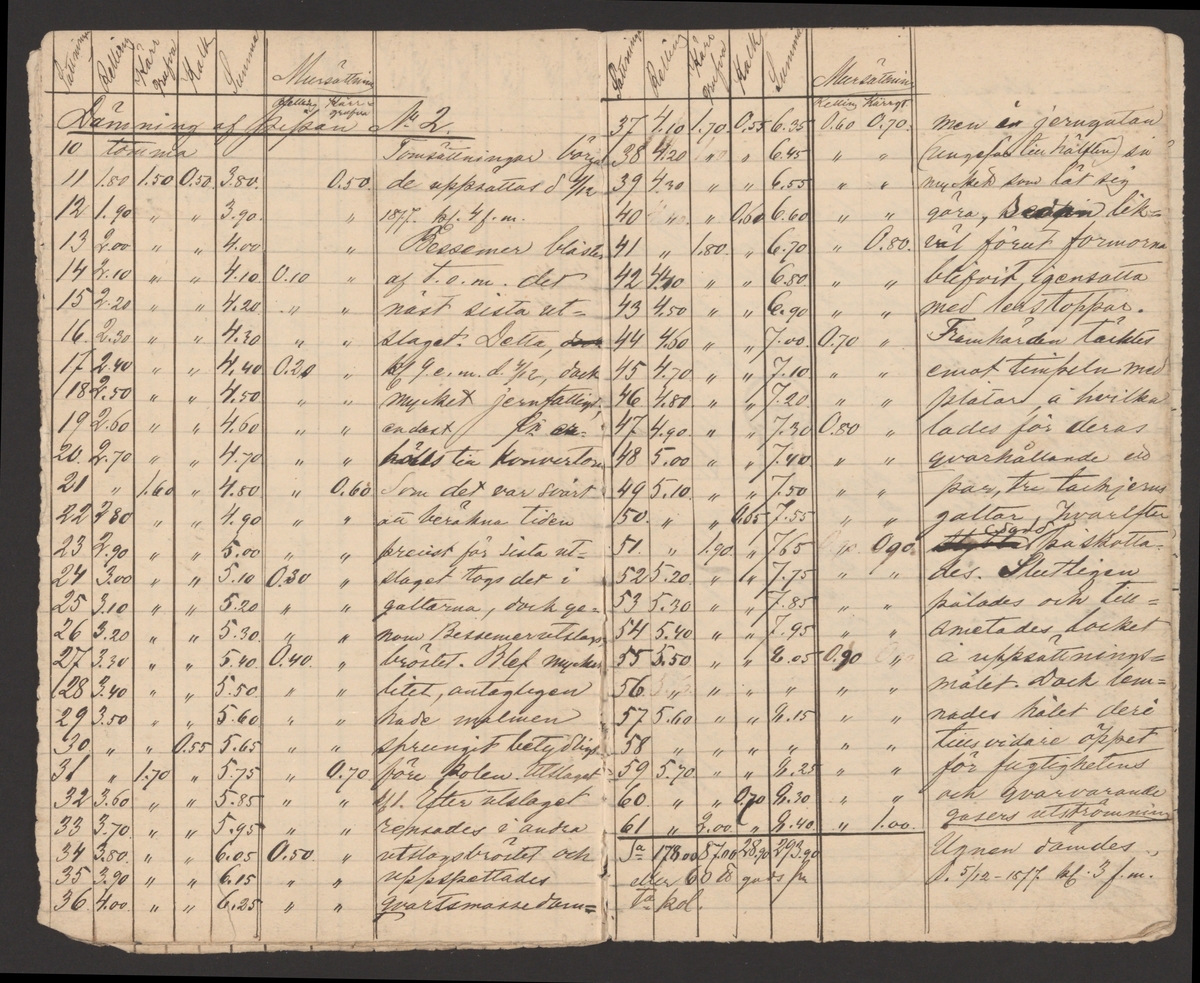 Sättning Relling Kärrgrufva Kalk Summa Mursättning
Relling Kärrgrufva
Dämning af pipan № 2.
10 tomma Tomsättningar börja
11 1.80 1.50 0.50 3.80. 0.50 de uppsättas d 4/12
12 1.90 " " 3.90. " 1877. kl. 4 f.m.
13 2.00 " " 4.00 " Bessemer blästes
14 2.10 " " 4.10 0.10 " af t.o.m. det
15 2.20 " " 4.20 " " näst sista ut=
16 2.30 " " 4.30 " " slaget. Detta,
17 2.40 " " 4.40 0.20 " kl 9 e.m. d. 4/12, dock
18 2.50 " " 4.50 " " mycket jernfattigt,
19 2.60 " " 4.60 " " endast
20 2.70 " " 4.70 " " hölls till Konvertorn
21 " 1.60 " 4.80 " 0.60 Som det var svårt
22 2.80 " " 4.90 " " att beräkna tiden
23 2.90 " " 5.00 " " precist för sista ut=
24 3.00 " " 5.10 0.30 " slaget togs det i
25 3.10 " " 5.20 " " galtarna, dock ge=
26 3.20 " " 5.30 " " nom Bessemerutslags
27 3.30 " " 5.40 0.40. " bröstet. Blef mycket
28 3.40 " " 5.50 " " litet, antagligen
29 3.50 " " 5.60 " " hade malmen
30 " " 0.55 5.65 " " sprungit betydligt
31 " 1.70 " 5.75 " 0.70 före kolen.
32 3.60 " " 5.85 " " Efter utslaget
33 3.70 " " 5.95 " " rensades i andra
34 3.80 " " 6.05 0.50 " utslagsbröstet och
35 3.90 " " 6.15 " " uppspettades
36 4.00 " " 6.25 " " qvartsmassedam=
Sättning Relling Kärrgrufva Kalk Summa Mursättning
Relling Kärrgr.
37 4.10 1.70 0.55 6.35 0.60 0.70 men ej jerngatan
38 4.20 " " 6.45 " " (ungefär till hälften) så
39 4.30 " " 6.55 " " mycket som lät sig
40 " " 0.60 6.60 " " göra, lik=
41 " 1.80 " 6.70 " 0.80 väl förut formorna
42 4.40 " " 6.80 " " blifvit igensatta
43 4.50 " " 6.90 " " med lerstoppar.
44 4.60 " " 7.00 0.70 " Framhärden täcktes
45 4.70 " " 7.10 " " emot timpeln med
46 4.80 " " 7.20 " " plåtar å hvilka
47 4.90 " " 7.30 0.80 " lades för deras
48 5.00 " " 7.40 " " qvarhållande ett
49 5.10 " " 7.50 " " par, tre tackjerns
50 " " 0.65 7.55 " " galtar, hvarefter
51 " 1.90 " 7.65 " 0.90 påskotta-
52 5.20 " " 7.75 " " des. Slutligen
53 5.30 " " 7.85 " " pålades och till=
54 5.40 " " 7.95 " " smetades locket
55 5.50 " " 8.05 0.90 " å uppsättnings=
56 " " " " målet. Dock lem=
57 5.60 " " 8.15 " " nades hålet deri
58 " " " " " " tillsvidare öppet
59 5.70 " " 8.25 " " för fugtighetens
60 " " 0.70 8.30 " " och qvarvarande
61 " 2.00 " 8.40 " 1.00 gasers utströmning
Sa 178.00 87.00 28.90 293.90 Ugnen dämdes
eller 60 ℔ gods pr d. 5/12-1877 kl. 3 f.m.
Ta kol.